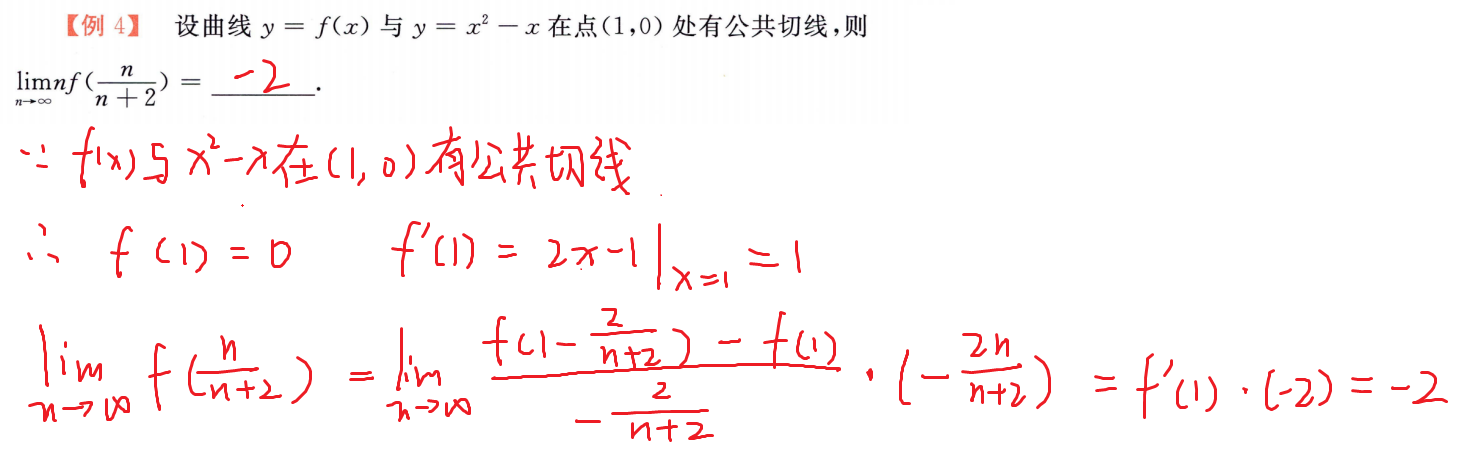 【例 4】 设曲线 y = f(x) 与 y = x² − x 在点(1,0) 处有公共切线,则
lim_{n→∞} nf(\frac{n}{n+2}) = -2 .
∵ f(x)与 x²-x在(1,0)有公共切线
∴ f(1)=0 f'(1) = 2x-1|_{x=1} = 1
lim_{n→∞} f(\frac{n}{n+2}) = lim_{n→∞} \frac{f(1-\frac{2}{n+2}) - f(1)}{-\frac{2}{n+2}} · (-\frac{2n}{n+2}) = f'(1)·(-2) = -2